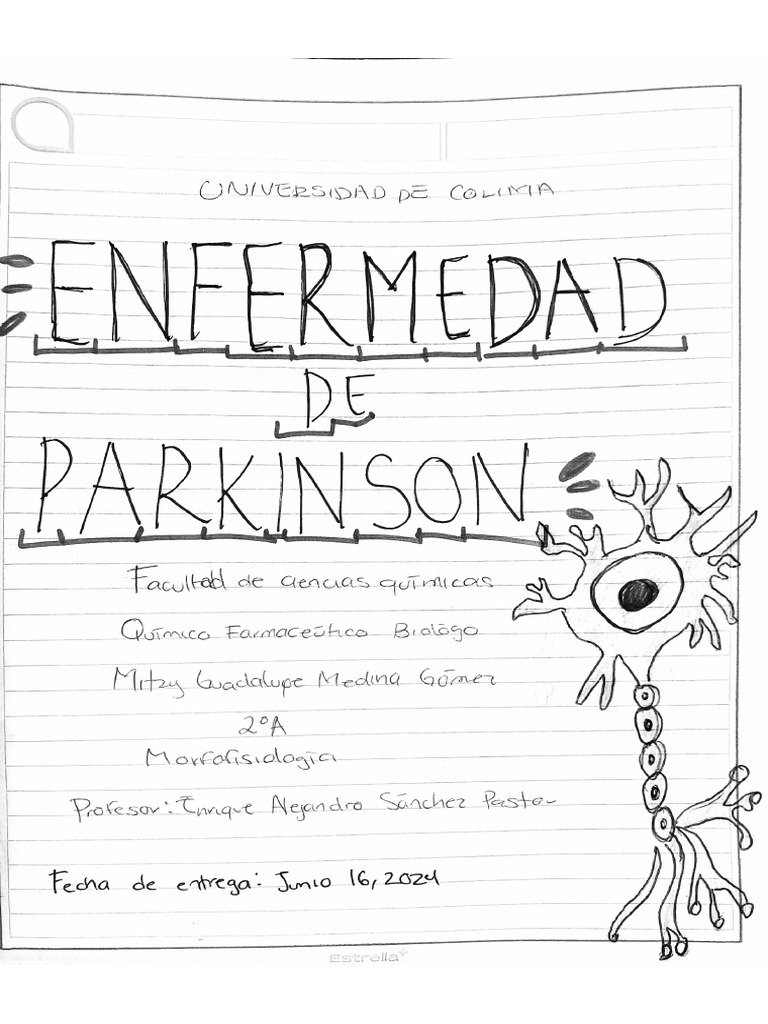 UNIVERSIDAD DE COLIMA
ENFERMEDAD
DE
PARKINSON
Facultad de ciencias químicas
Químico Farmaceútico Biológo
Mitzy Guadalupe Medina Gómez
2°A
Morfofisiología
Profesor: Enrique Alejandro Sánchez Pastor
Fecha de entrega: Junio 16, 2024
Estrella